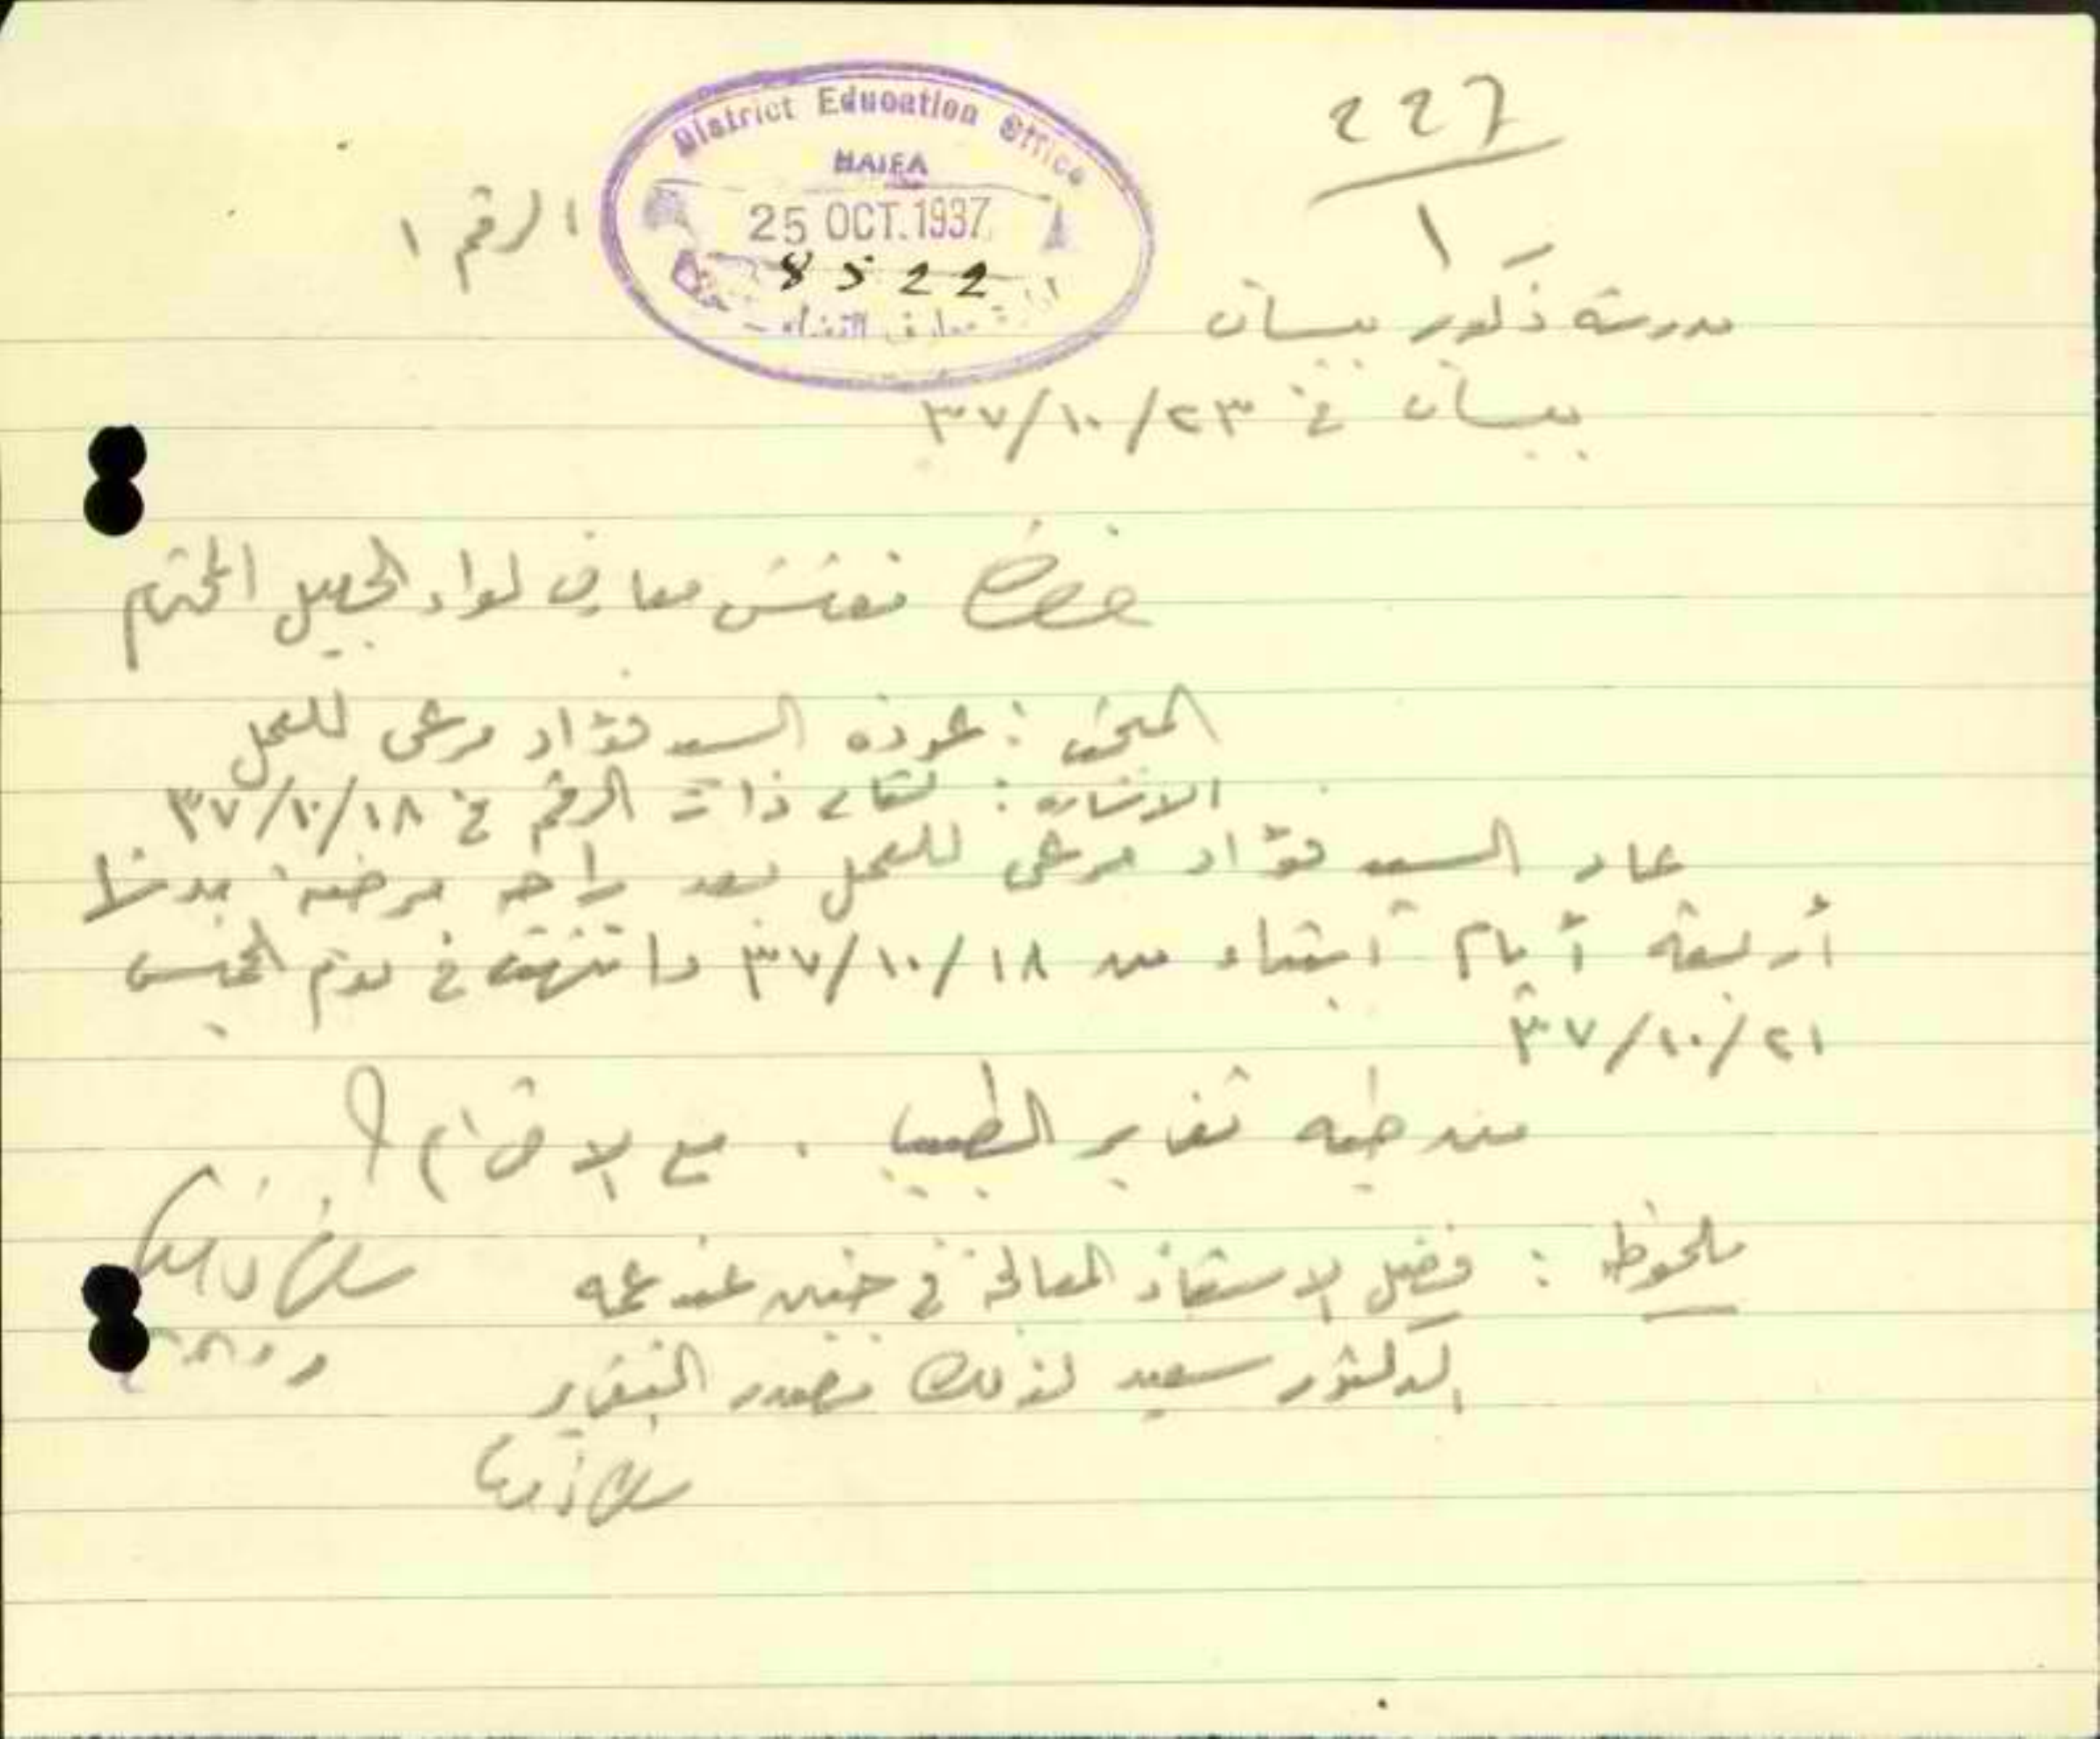 227
1
District Education Office
HAIFA
25 OCT.1937
8522
الرقم ١
مدرسة ذكور بيسان
بيسان في ٢٣/١٠/٣٧
حضرة مفتش معارف لواء الجليل المحترم
المبحث : عودة السيد فؤاد مرعي للعمل
الاشارة : كتابي ذات الرقم في ١٨/١٠/٣٧
عاد السيد فؤاد مرعي للعمل بعد راحة مرضية مدتها
أربعة أيام ابتداء من ١٨/١٠/٣٧ وانتهت في يوم الخميس
٢١/١٠/٣٧
من طيه تقرير الطبيب . مع الاحترام
ملحوظة : فضل الاستاذ المعالجة في جنين عند عمه
الدكتور سعيد لذلك مصدر التقرير